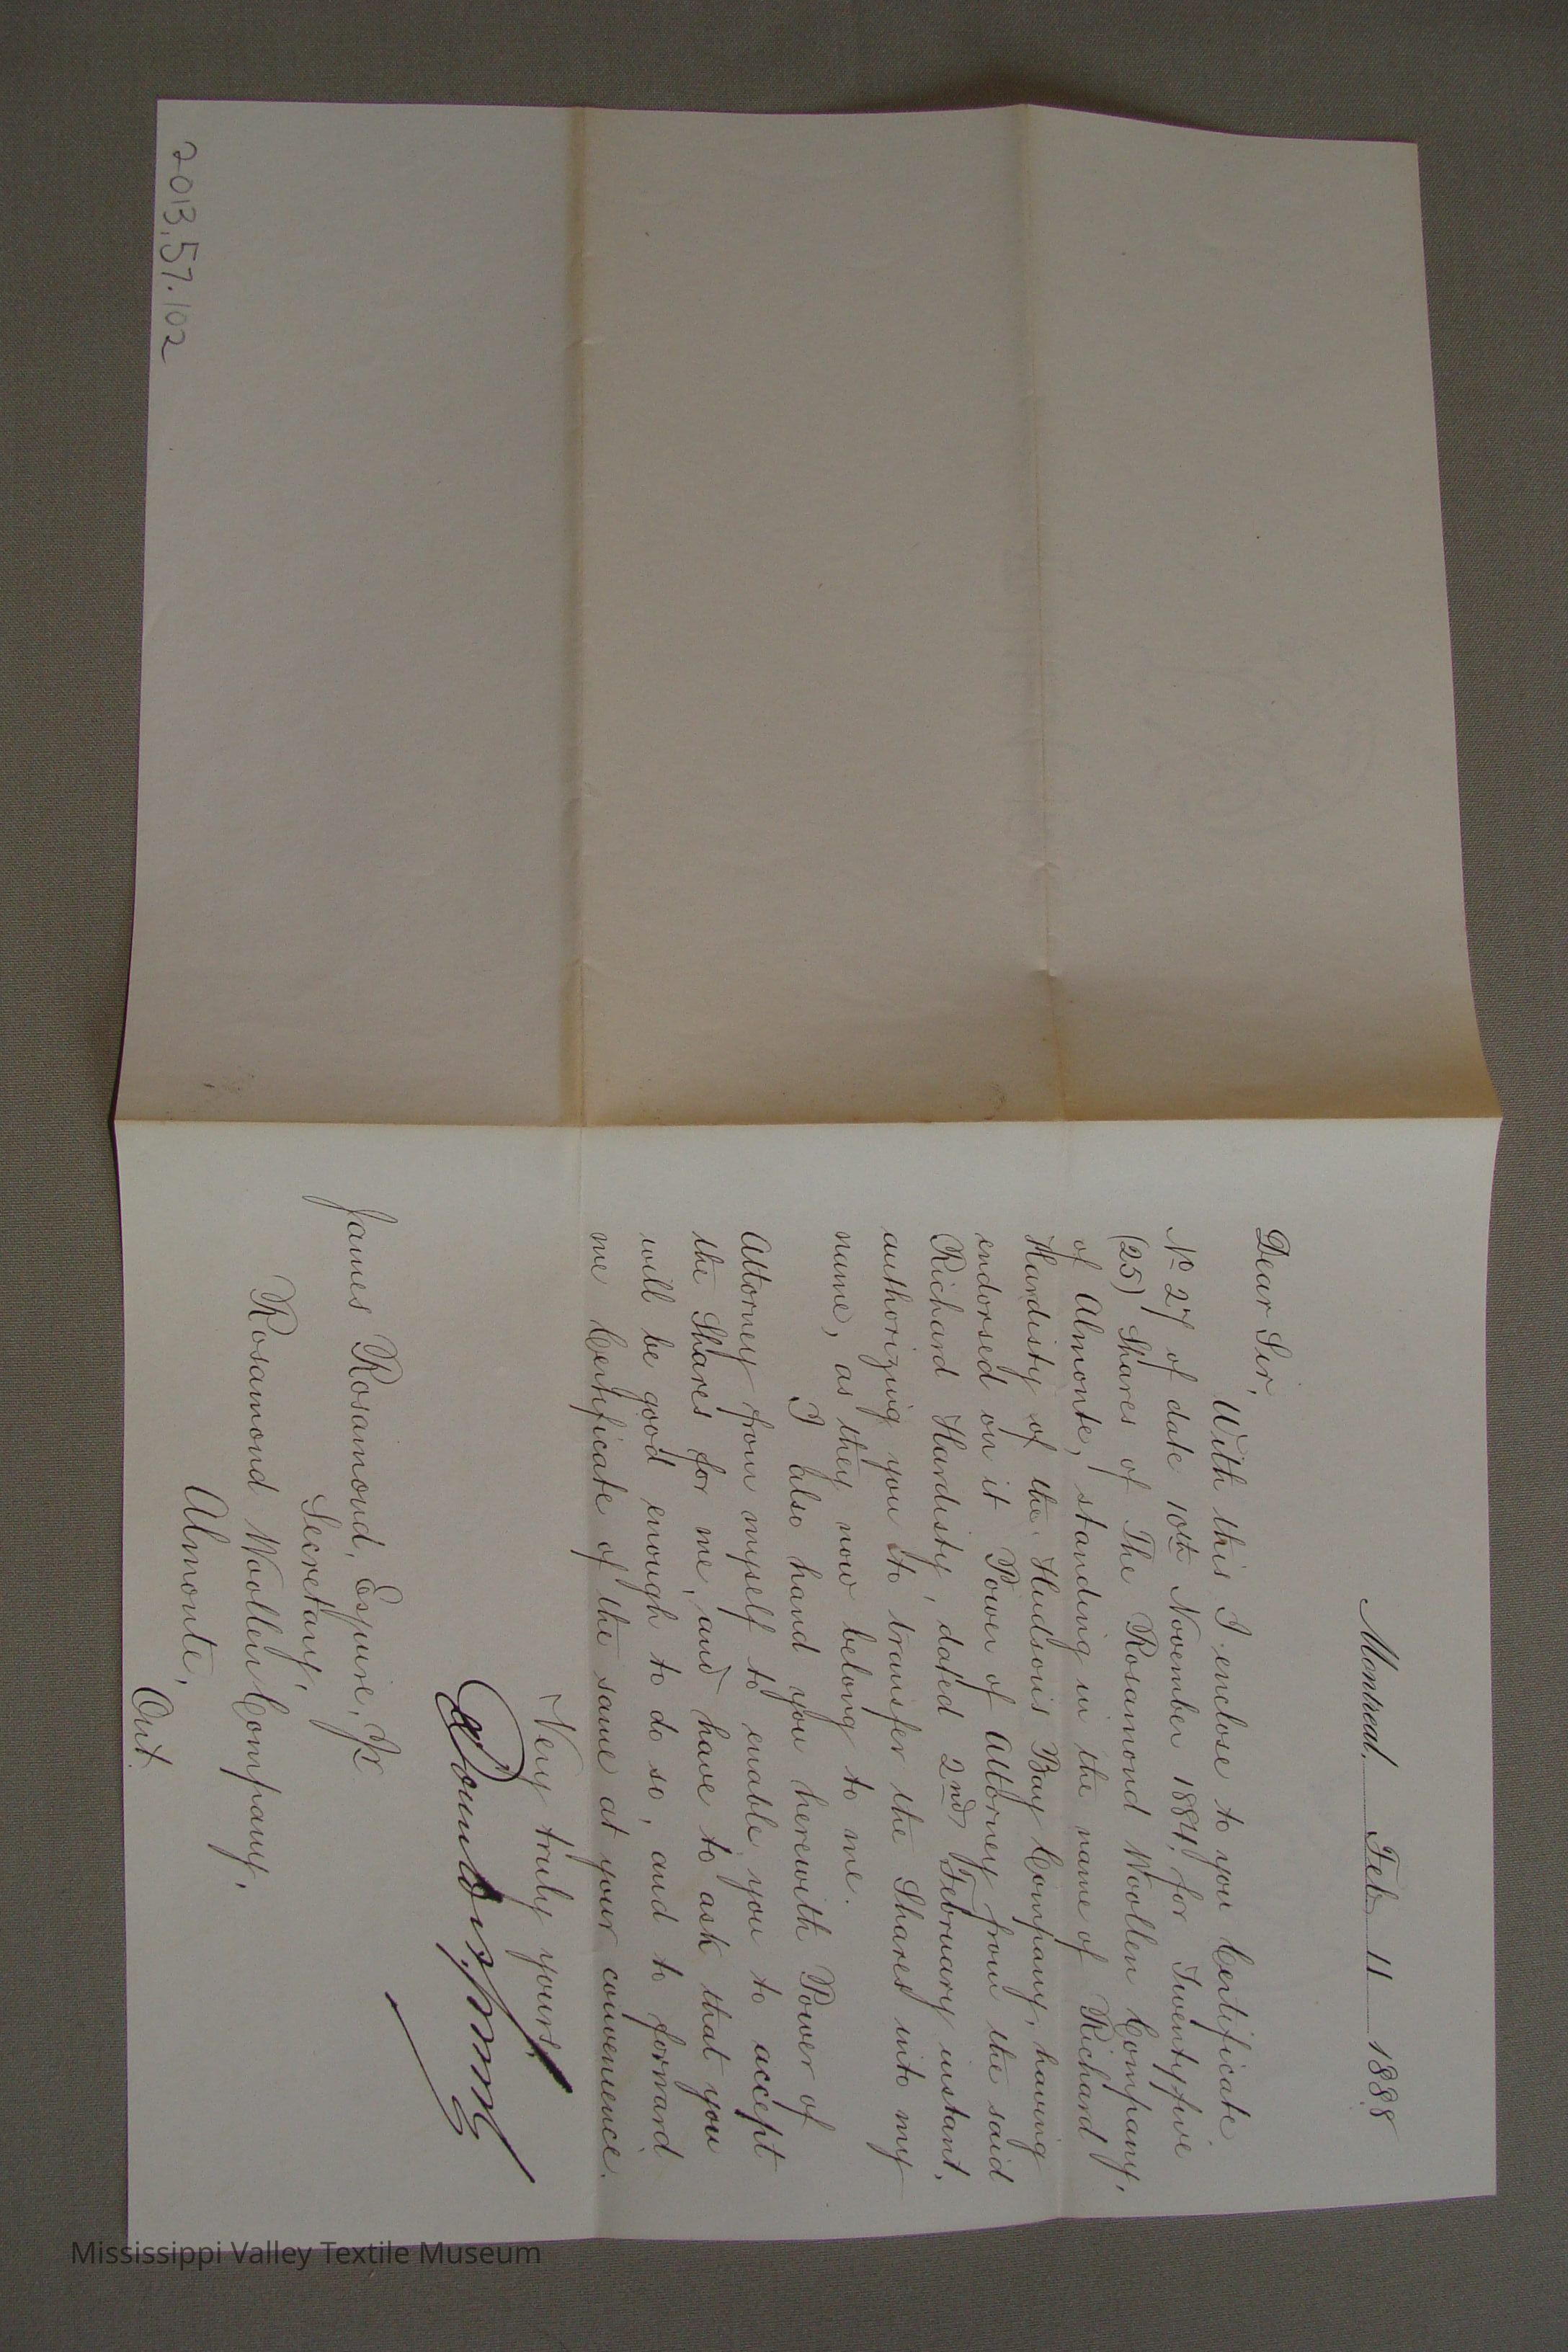 Montreal. Feb 11 1888
Dear Sir,
With this I enclose to you Certificate
No 27 of date 10th November 1884, for Twenty five
(25) Shares of The Rosamond Woollen Company,
of Almonte, standing in the name of Richard
Hardisty of the Hudson's Bay Company, having
endorsed on it Power of Attorney from the said
Richard Hardisty, dated 2nd February instant,
authorizing you to transfer the Shares into my
name, as they now belong to me.
I also hand you herewith Power of
Attorney from myself to enable you to accept
the Shares for me, and have to ask that you
will be good enough to do so, and to forward
me Certificate of the same at your convenience.
Very truly yours
James Rosamond, Esquire, Jr
Secretary,
Rosamond Woollen Company,
Almonte,
Ont.
2013.57.102
Mississippi Valley Textile Museum